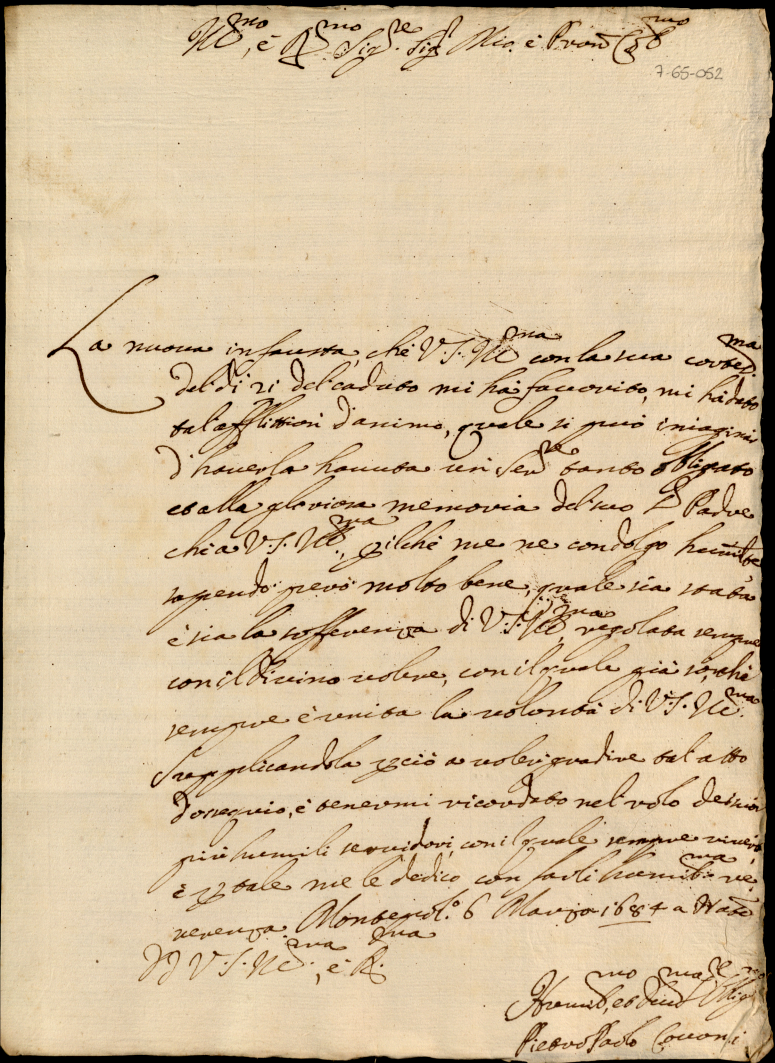 Ill.mo, è R.mo Sig.re Sig.r Mio, è Pron Col.mo
7-65-052
La nuova infausta, che V.S. Ill.ma con la sua cortes.ma
del di 21 del caduto mi hà favorito, mi hà dato
tal'afflittion d'animo, quale si può imaginar
d'haverla havuta un Ser.re tanto obligato
et alla gloriosa memoria del suo S. Padre
che à V.S. Ill.ma, p ilche me ne condolgo humilte
sapendo però molto bene, quale sia stata
è sia la sofferenza di V.S. Ill.ma regolata sempre
con il Divino volere, con il quale già sò, che
sempre è unita la volontà di V.S. Ill.ma
Supplicandola pciò a voler gradire tal atto
d'ossequio, è tenermi ricordato nel rolo de suoi
più humili servidori, con il quale sempre viverò,
è p tale me le dedico con farli humil.ma re,
verenza. 6 Marzo 1684
DD V.S. Ill.ma, è R.ma
Humil.mo, et Dev.mo Ser.re Oblig.mo
Pietro Paolo